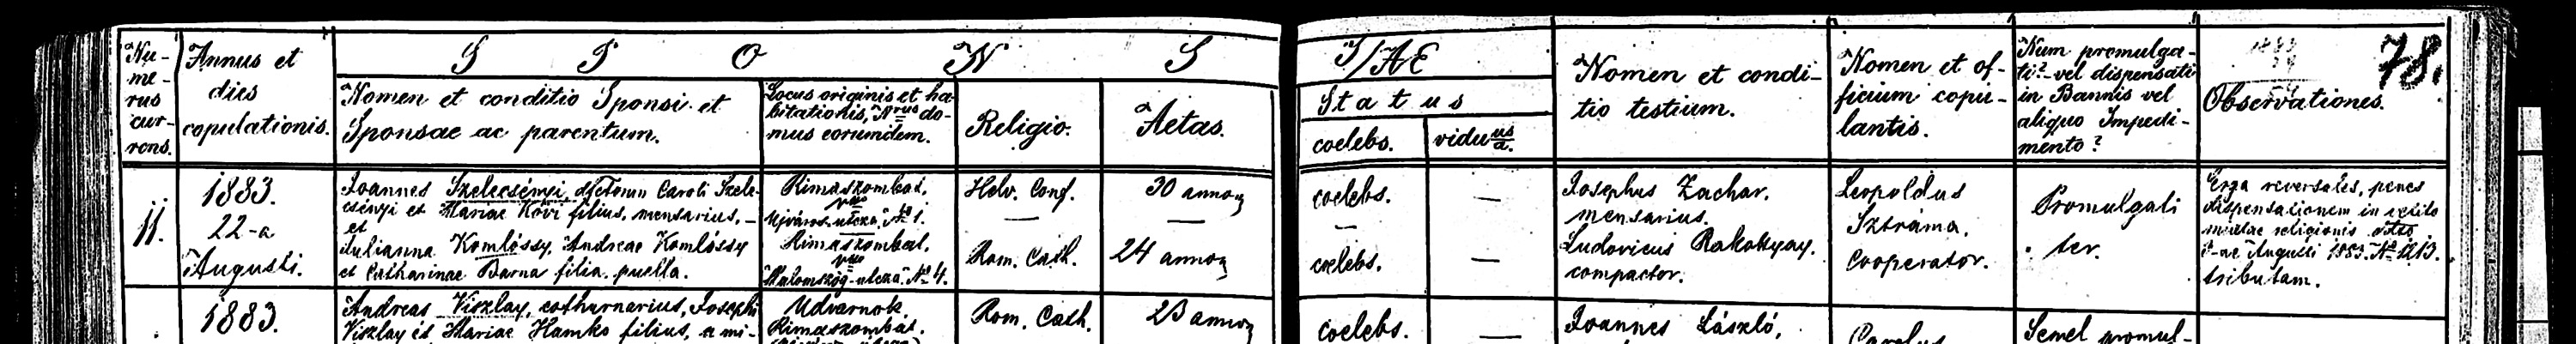 Nu-
me-
rus
cur-
rens.
Annus et
dies
copulationis.
S P O N S I/AE
Nomen et conditio Sponsi et
Sponsae ac parentum.
Locus originis et ha-
bitationis, Nrus do-
mus eorumdem.
Religio.
Aetas.
Status
coelebs.
vidu us/a.
Nomen et condi-
tio testium.
Nomen et of-
ficium copu-
lantis.
Num promulga-
ti? vel dispensati
in Bannis vel
aliquo Impedi-
mento?
Observationes.
78.
11.
1883.
22-a
Augusti.
Joannes Szelecsényi, Caroli Szele-
csényi et Mariae Kövi filius, mensarius, –
et
Julianna Komlóssy, Andreae Komlóssy
et Catharinae Barna filia, puella.
Rimaszombat,
Ujváros-utcza, No 1.
Rimaszombat,
Malomszög-utcza, No 4.
Helv. Conf.
—
Rom. Cath.
30 annor
—
24 annor
coelebs.
—
coelebs.
—
—
Josephus Zachar,
mensarius.
Ludovicus Rakottyay,
compactor.
Leopoldus
Sztráma,
Cooperator.
Promulgati
ter.
Erga reversales, penes
dispensationem in vetito
mixtae religionis
Augusti 1883. No
tributam.
1883.
Andreas Viszlay, cothurnarius, Josephi
Viszlay et Mariae Hamko filius, a mi-
Udvarnok,
Rimaszombat,
Rom. Cath.
23 annor
coelebs.
—
Joannes László,
Carolus
Semel promul-